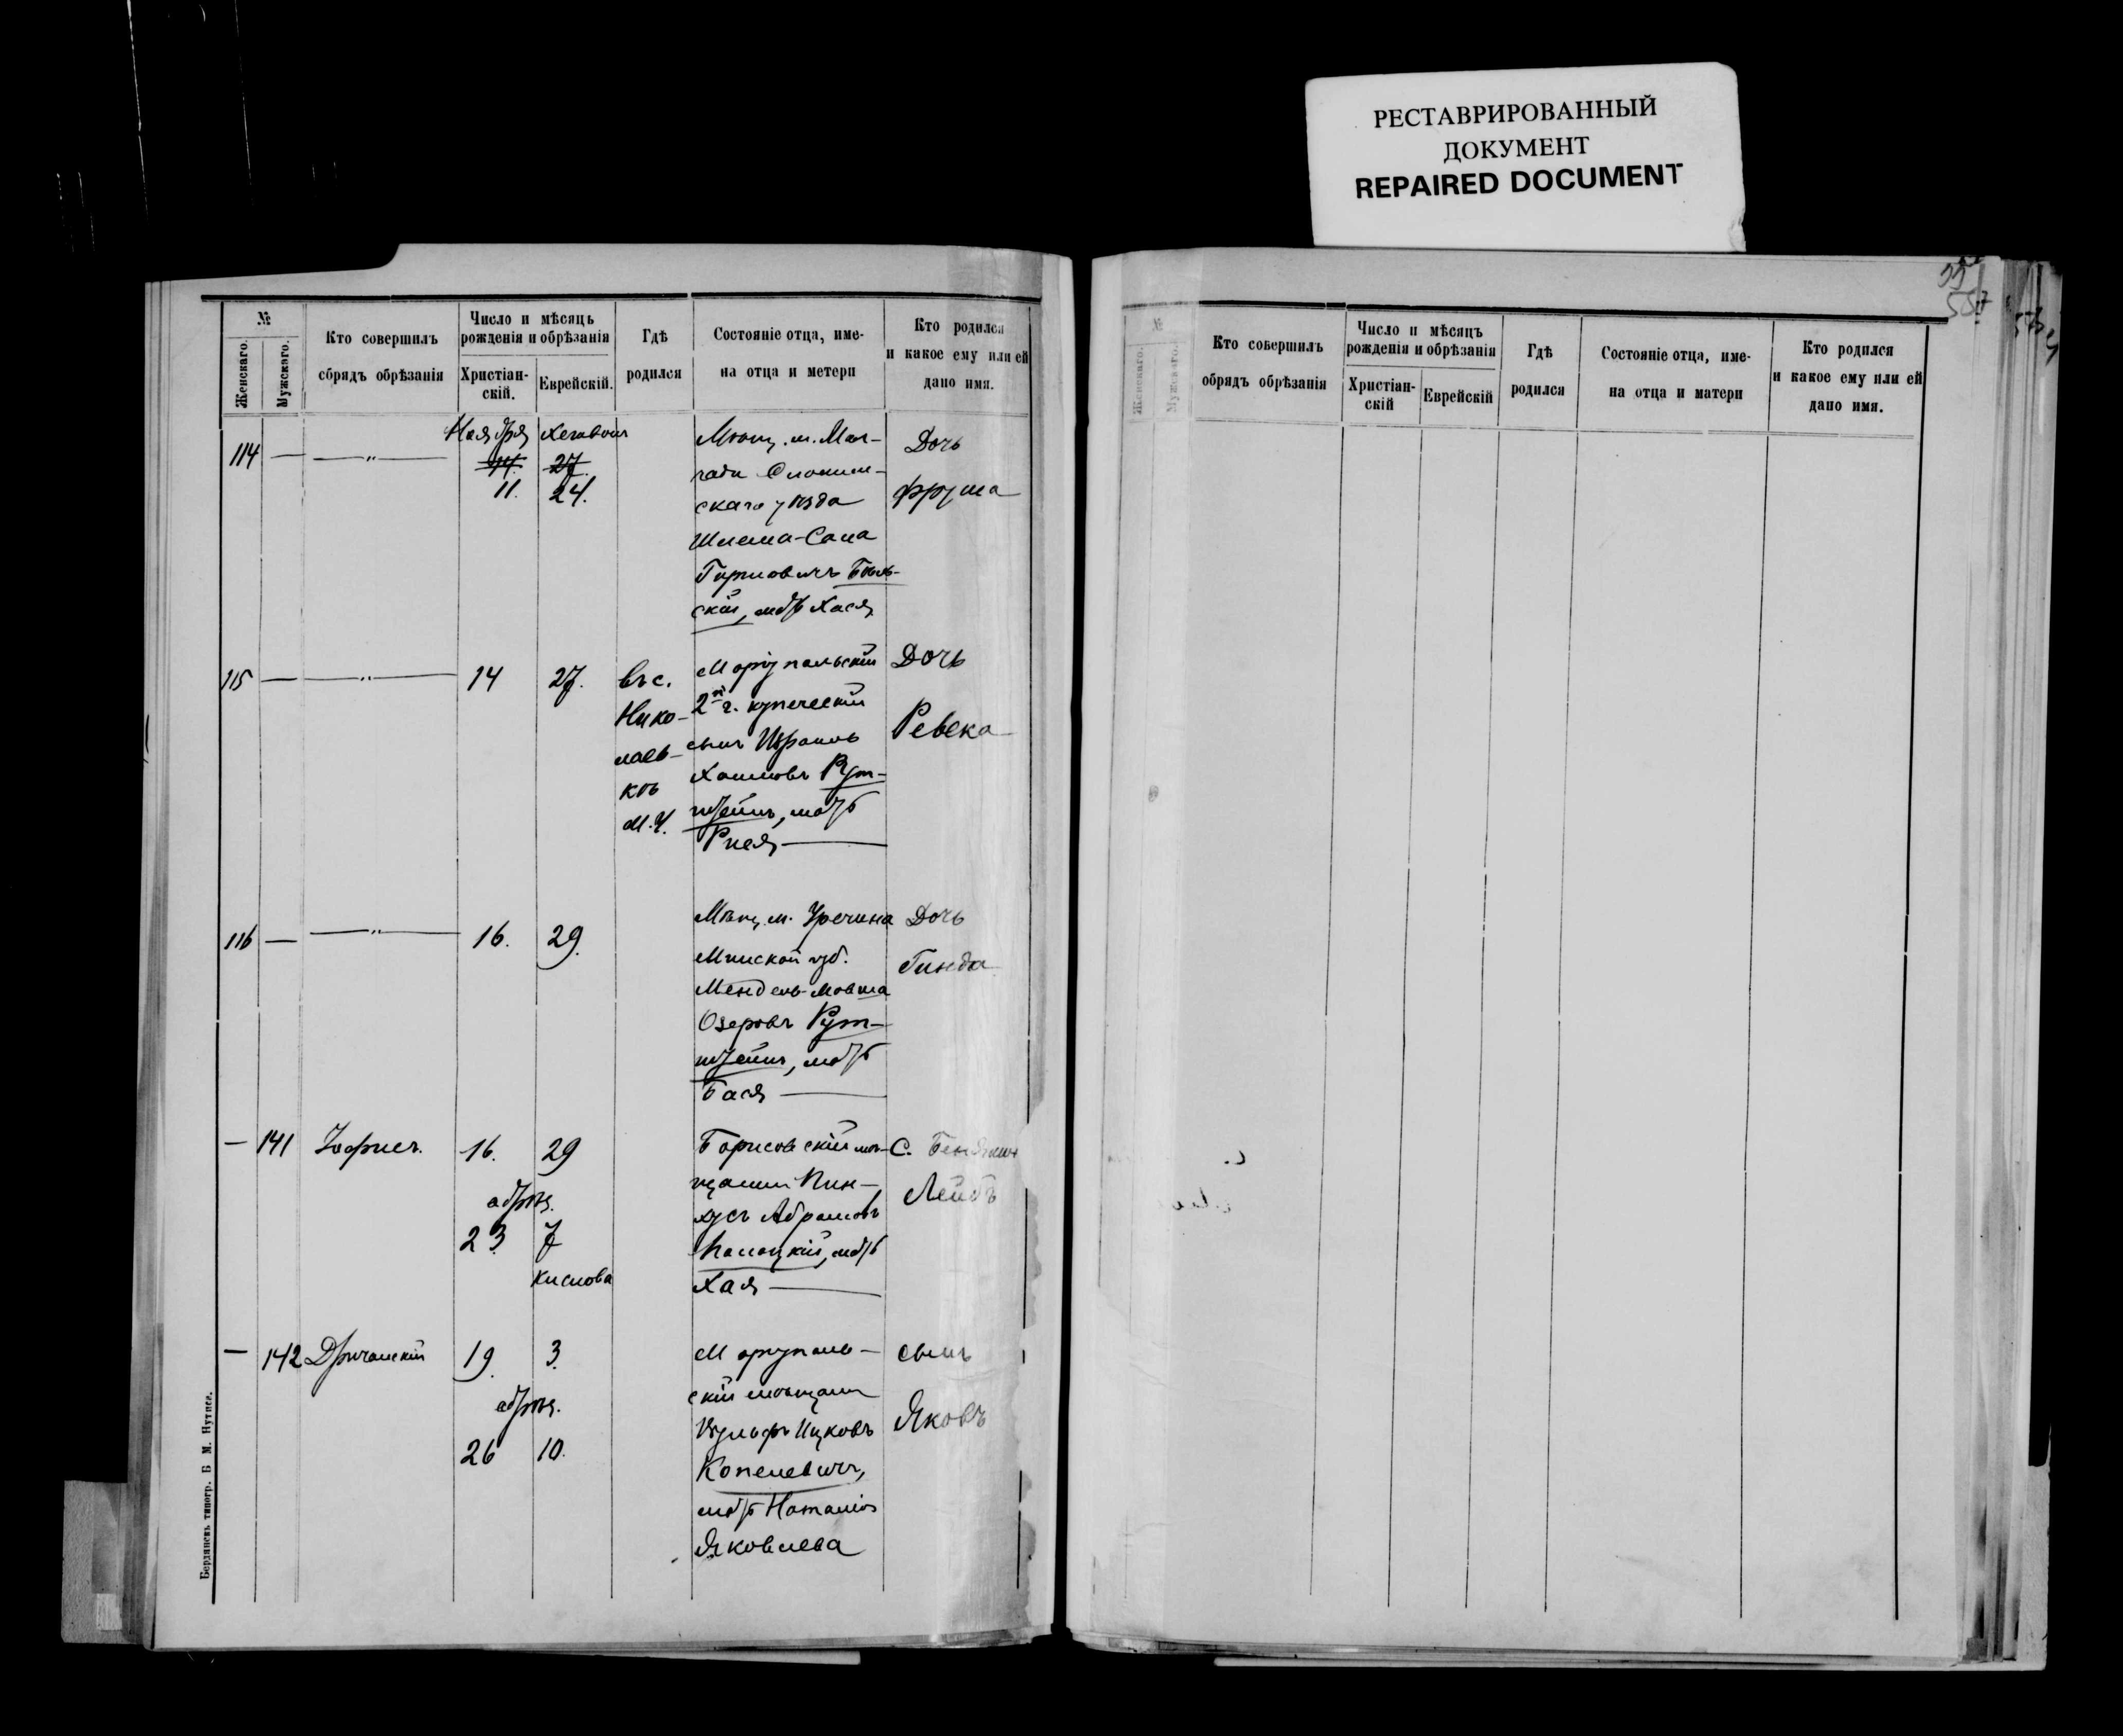 РЕСТАВРИРОВАННЫЙ
ДОКУМЕНТ
REPAIRED DOCUMENT
№
Женскаго.
Мужскаго.
Кто совершилъ
сбрядъ обрѣзанія
Число и мѣсяць
рожденія и обрѣзанія
Христіан-
скій.
Еврейскій.
Гдѣ
родился
Состояніе отца, име-
на отца и метери
Кто родился
и какое ему или ей
дано имя.
114 — —„—
Ноября
11. 24.
Мѣщ. м.
скаго уѣзда
Шлема-
скій, Хася
Дочь
Фрума
115 — —„— 14 27.
въ с.
Нико-
лаев-
кѣ
М. У.
Маріупольскій
2й г. купеческій
сынъ
Хаимовъ Рут-
штейнъ,
Рися —
Дочь
Ревека
116 — —„— 16. 29.
Мѣщ. м. Уречина
Минской губ.
Мендель-Мовша
Озеровъ Рут-
штейнъ,
Бася —
Дочь
Гинда
— 141 Іофисъ. 16. 29
обрѣз.
23. 7
Кислова
Борисовскій мѣ-
щанинъ Пин-
хусъ Абрамовъ
Хая —
С. Беніамин
Лейбъ
— 142 19. 3.
обрѣз.
26 10.
Маріуполь-
скій мѣщанин
Вульфъ Ицковъ
Копелевичъ,
Наталія
Яковлева
сынъ
Яковъ
Бердянскъ типогр. Б М. Нутисъ.
557
№
Женскаго.
Мужскаго.
Кто совершилъ
обрядъ обрѣзанія
Число и мѣсяцъ
рожденія и обрѣзанія
Христіан-
скій
Еврейскій
Гдѣ
родился
Состояніе отца, име-
на отца и матери
Кто родился
и какое ему или ей
дано имя.